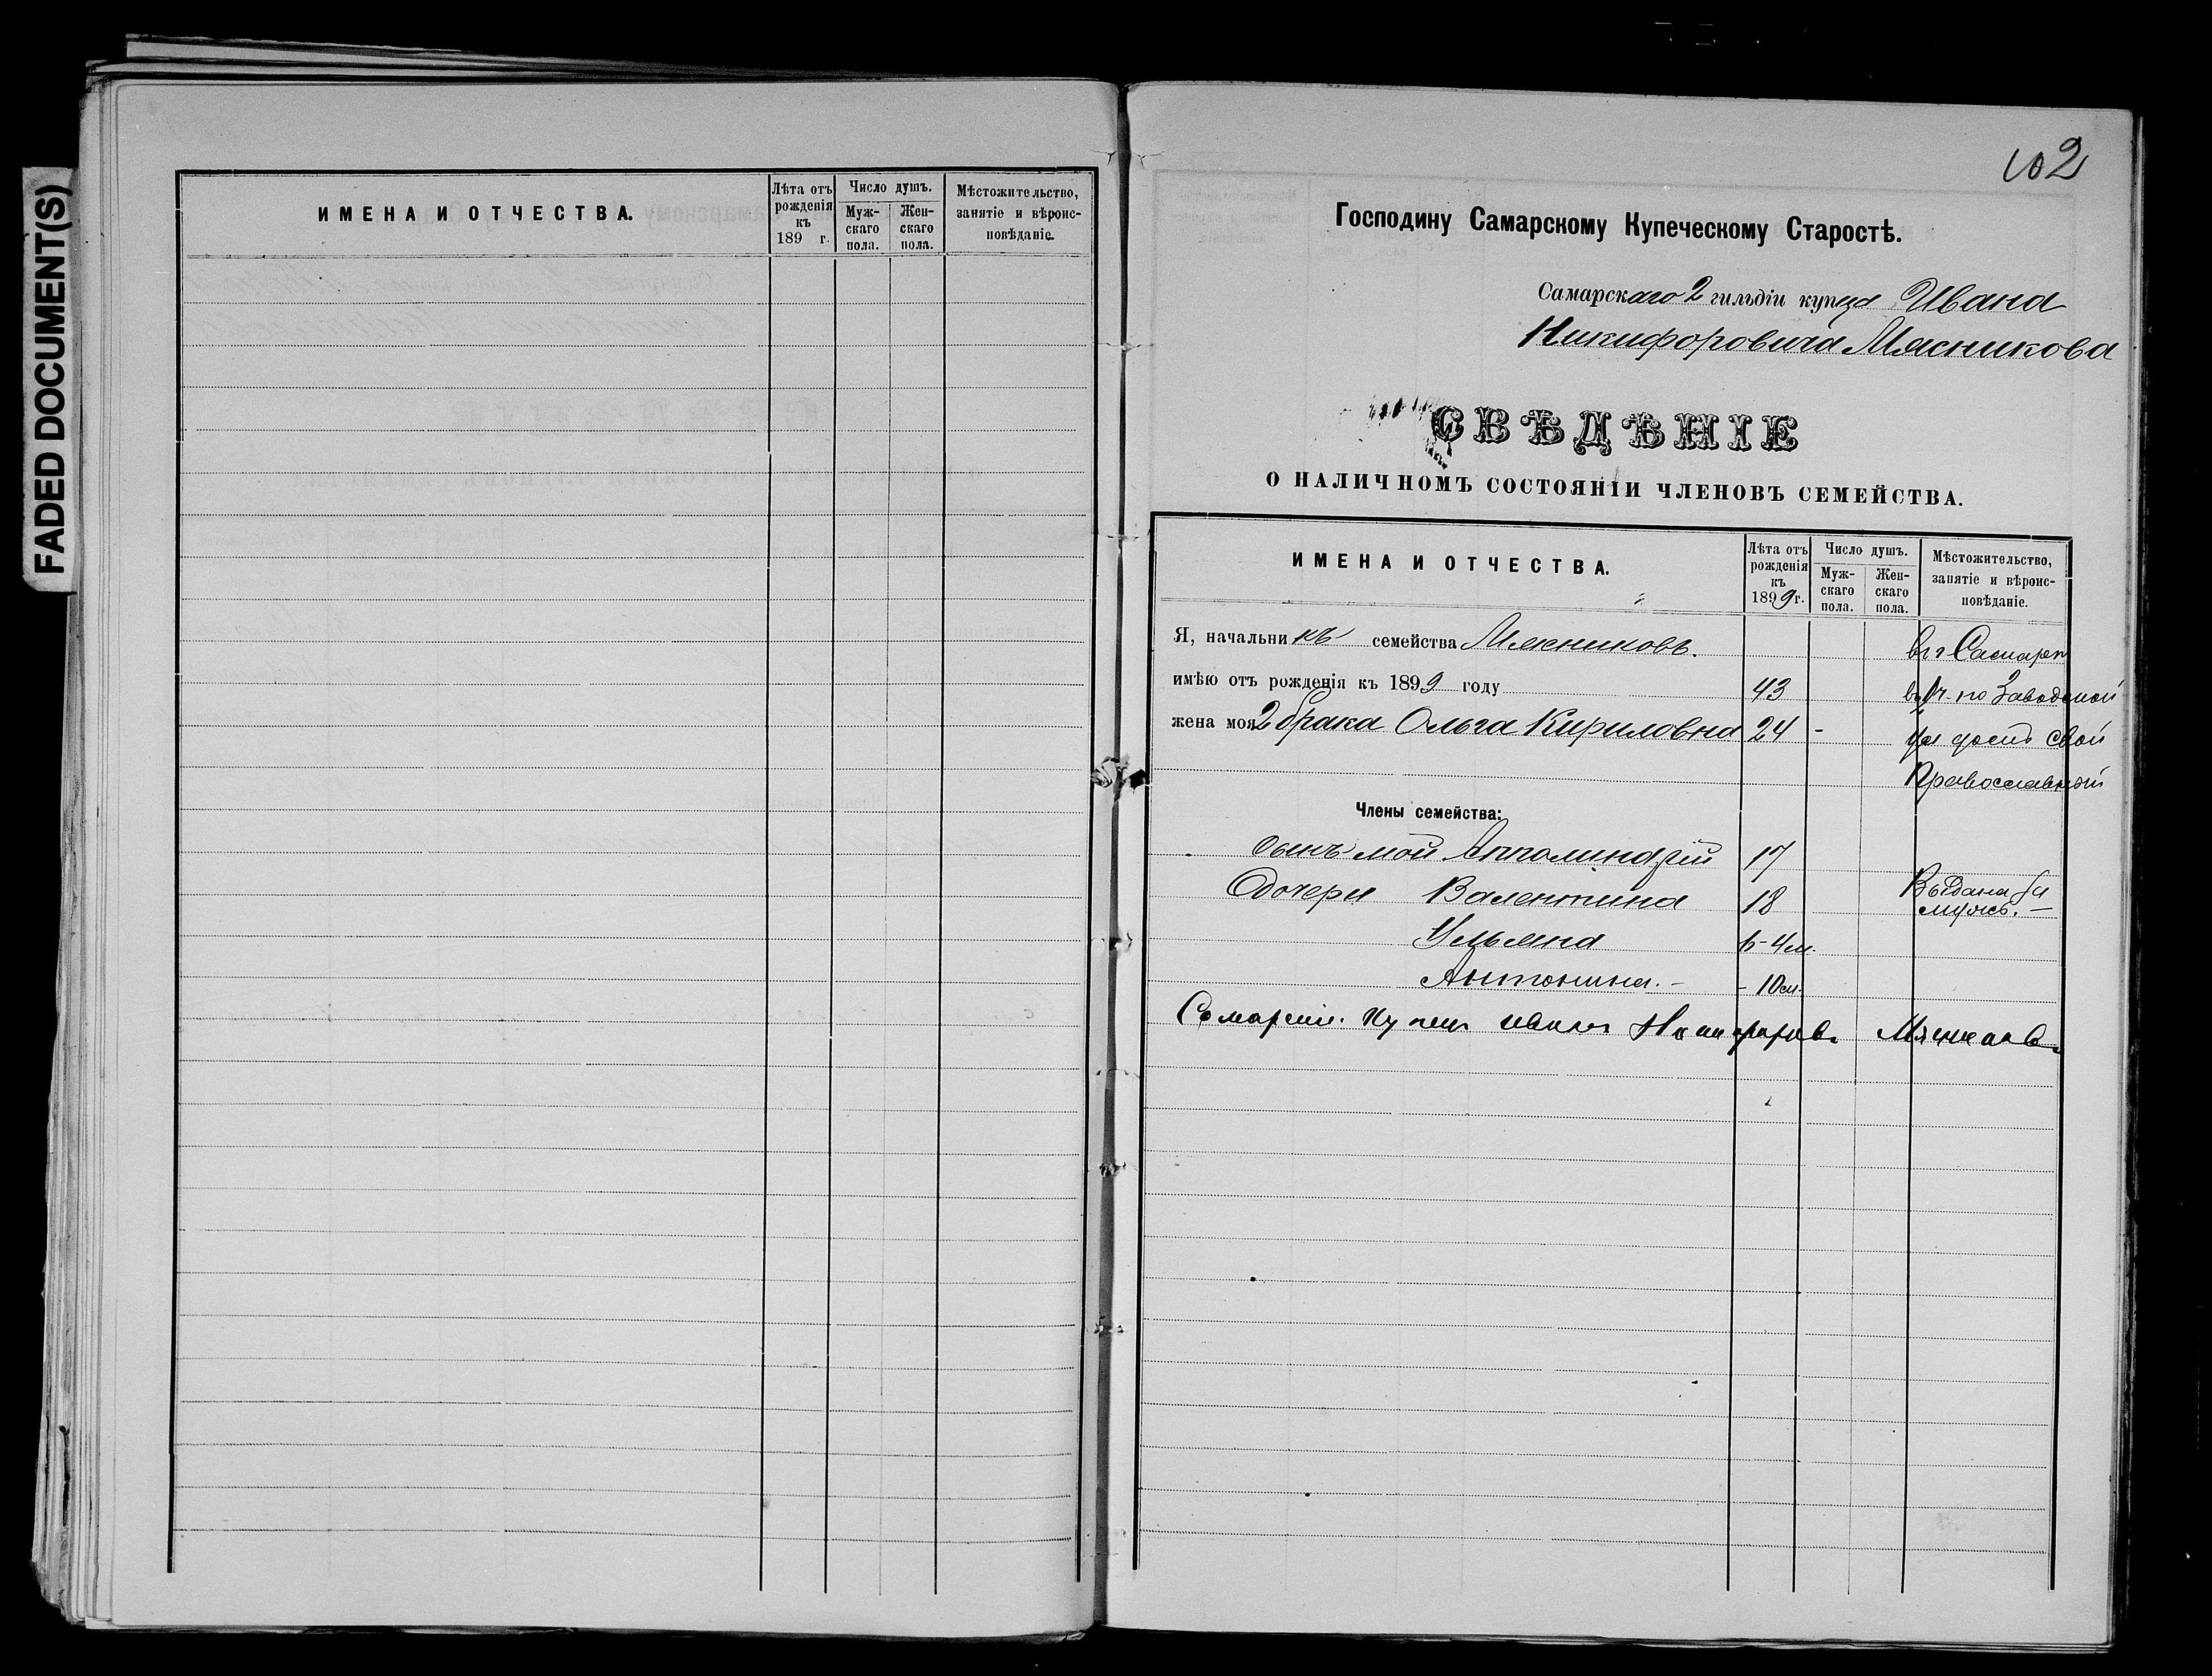 FADED DOCUMENT(S)
ИМЕНА И ОТЧЕСТВА.
Лѣта отъ рожденія къ 189 г.
Число душъ.
Мужскаго пола.
Женскаго пола.
Мѣстожительство, занятіе и вѣроисповѣданіе.
102
Господину Самарскому Купеческому Старостѣ.
Самарскаго 2 гильдіи купца Ивана
Никифоровича Мясникова
СВѢДѢНІЕ
О НАЛИЧНОМЪ СОСТОЯНІИ ЧЛЕНОВЪ СЕМЕЙСТВА.
ИМЕНА И ОТЧЕСТВА.
Лѣта отъ рожденія къ 1899 г.
Число душъ.
Мужскаго пола.
Женскаго пола.
Мѣстожительство, занятіе и вѣроисповѣданіе.
Я, начальникъ семейства Мясниковъ. въ г Самарѣ
имѣю отъ рожденія къ 1899 году 43 ч. по Заводской
жена моя 2 брака Ольга Кириловна 24 - ул домъ свой
Православный
Члены семейства:
сынъ мой 17
Дочери Валентина 18 Выдана за мужъ. -
Ульяна 4 м
Антонина. - - 10 м.
Самарскій Купецъ Иванъ Мясников